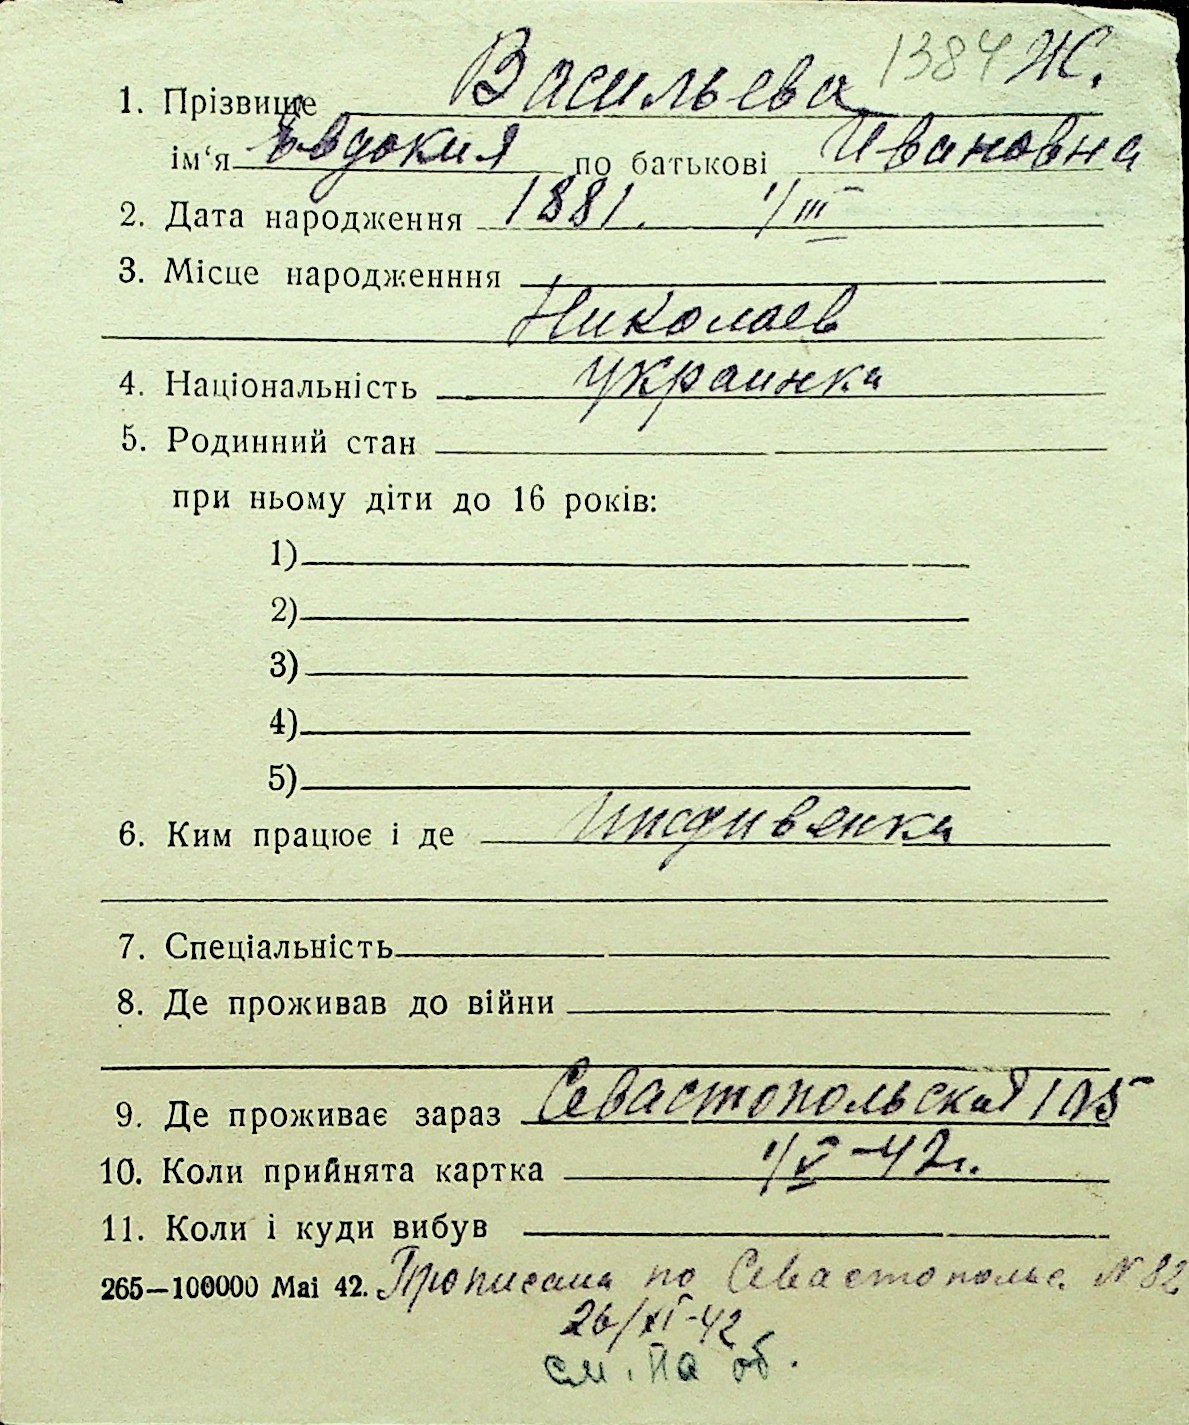 1384 Ж.
1. Прізвище Васильева
ім‘я Евдокия по батькові Ивановна
2. Дата народження 1881. 1/III
3. Місце народженння
Николаев
4. Національність украинка
5. Родинний стан
при ньому діти до 16 років:
1)
2)
3)
4)
5)
6. Ким працює і де иждивенка
7. Спеціальність
8. Де проживав до війни
9. Де проживає зараз Севастопольская 105
10. Коли прийнята картка 1/V-42г.
11. Коли і куди вибув
265—100000 Mai 42. Прописана по Севастопольс. N 82
26/XI-42
см. на об.